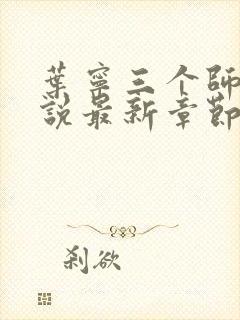 葉寧三个師
說最新章節
刹欲